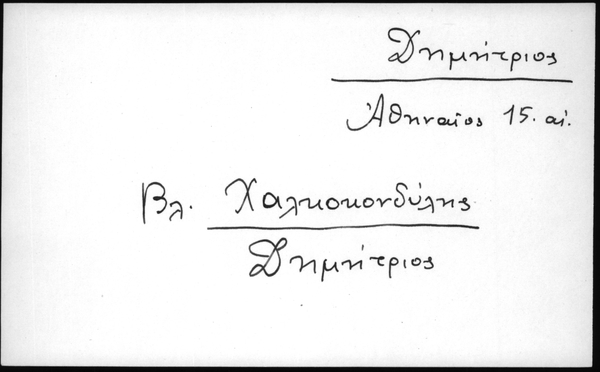 Δημήτριος
Ἀθηναῖος 15. αἰ.
Βλ. Χαλκοκονδύλης
Δημήτριος